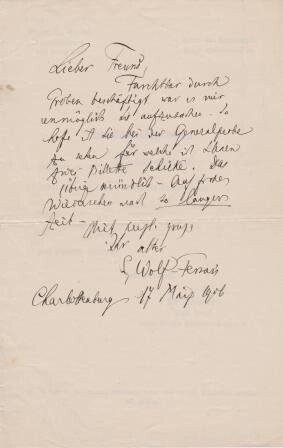 Lieber Freund,
Furchtbar durch
Proben beschäftigt war es mir
unmöglich Sie aufzusuchen. So
hoffe ich Sie bei der Generalprobe
zu sehen für welche ich Ihnen
zwei Billette schicke. Das
übrige mündlich – Auf frohes
Wiedersehen nach so langer
Zeit –
Mit herzl. Gruss
Ihr alter
E Wolf-Ferrari
Charlottenburg 17 März 1906